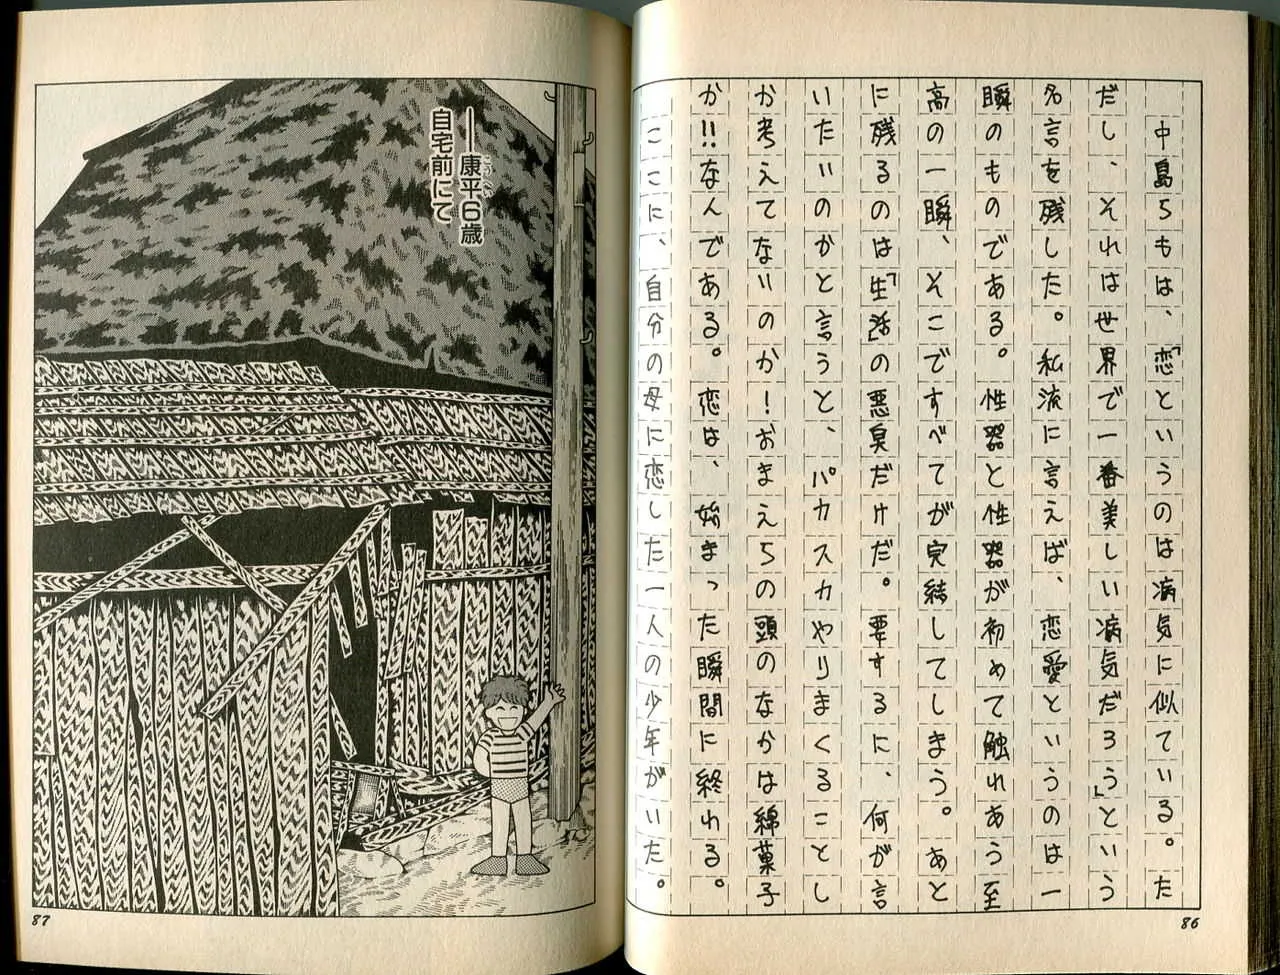 中島らもは、「恋というのは病気に似ている。た
だし、それは世界で一番美しい病気だろう」という
名言を残した。私流に言えば、恋愛というのは一
瞬のものである。性器と性器が初めて触れあう至
高の一瞬、そこですべてが完結してしまう。あと
に残るのは「生活」の悪臭だけだ。要するに、何が言
いたいのかと言うと、パカスカやりまくることし
か考えてないのか！おまえらの頭のなかは綿菓子
か!!なんである。恋は、始まった瞬間に終わる。
ここに、自分の母に恋した一人の少年がいた。
86
──康平6歳
自宅前にて
87